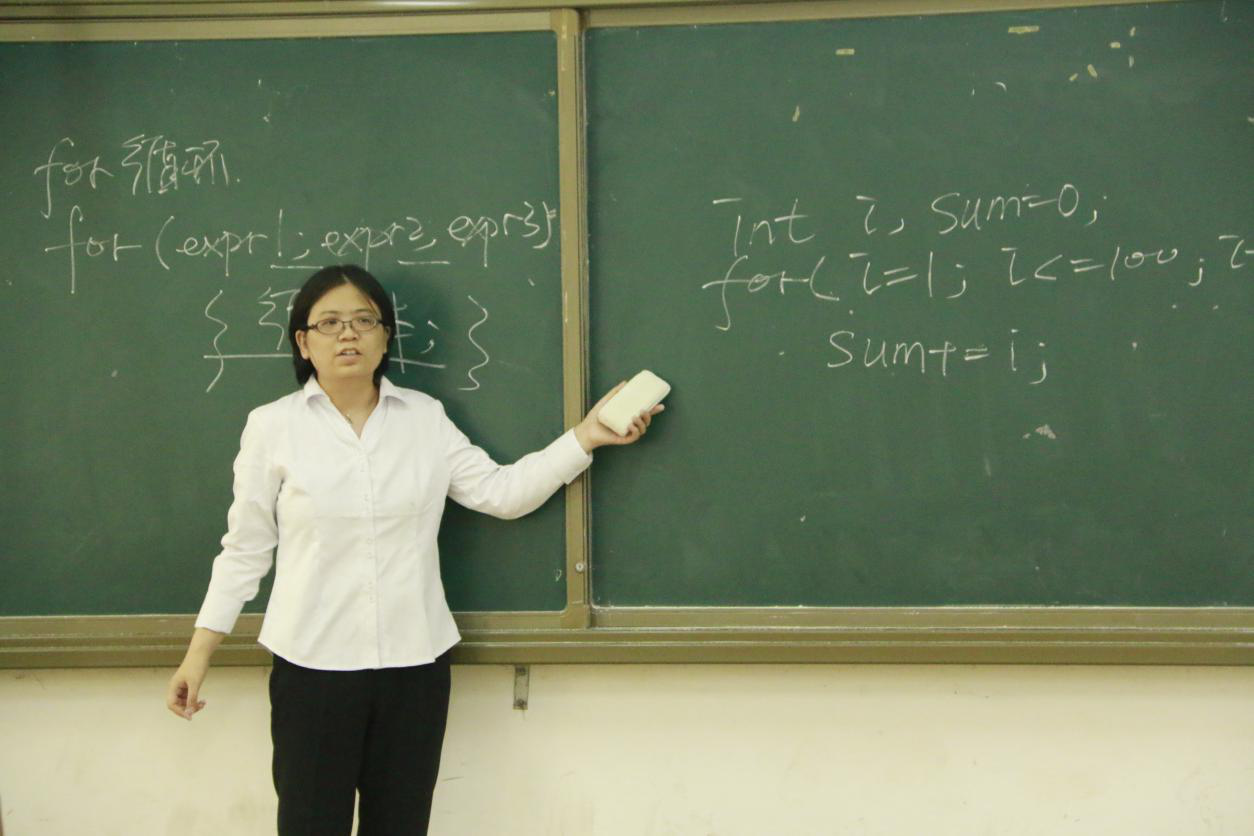 for 循环
for (expr1; expr2; expr3)
{ ; }
int i, sum=0;
for( i=1; i<=100; i
sum+=i;